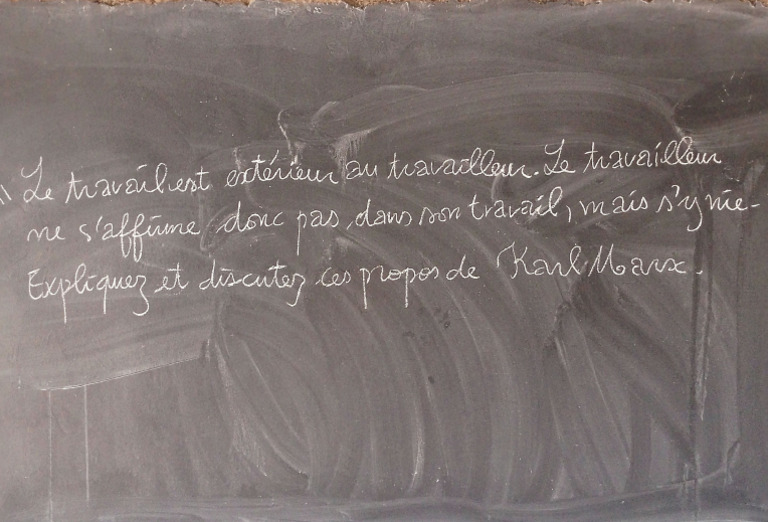 " Le travail est extérieur au travailleur. Le travailleur
ne s'affirme donc pas, dans son travail, mais s'y nie.
Expliquez et discutez ces propos de Karl Marx.